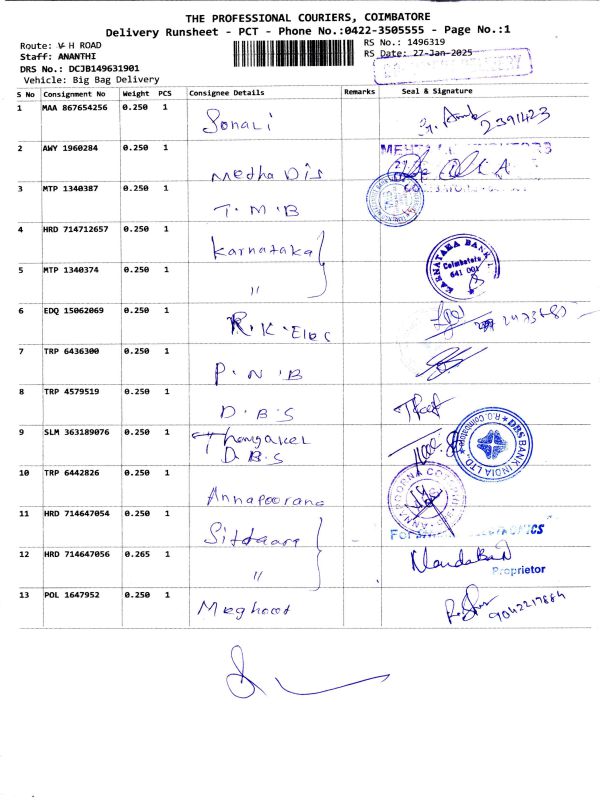 THE PROFESSIONAL COURIERS, COIMBATORE
Delivery Runsheet - PCT - Phone No.:0422-3505555 - Page No.:1
Route: V H ROAD
RS No.: 1496319
Staff: ANANTHI
RS Date: 27-Jan-2025
DRS No.: DCJB149631901
Vehicle: Big Bag Delivery
S No Consignment No Weight PCS Consignee Details Remarks Seal & Signature
1 MAA 867654256 0.250 1 Sonali 2391423
2 AWY 1960284 0.250 1 Medha Dis
3 MTP 1340387 0.250 1 T.M.B
4 HRD 714712657 0.250 1 Karnataka KARNATAKA BANK Coimbatore 641 001
5 MTP 1340374 0.250 1 "
6 EDQ 15062069 0.250 1 R.K.Elec
7 TRP 6436300 0.250 1 P.N.B
8 TRP 4579519 0.250 1 D.B.S
9 SLM 363189076 0.250 1 Thangavel
D.B.S DBS BANK INDIA LTD. R.O. Coimbatore
10 TRP 6442826 0.250 1 Annapoorana
11 HRD 714647054 0.250 1 Sittaara For
12 HRD 714647056 0.265 1 " Proprietor
13 POL 1647952 0.250 1 9042217884